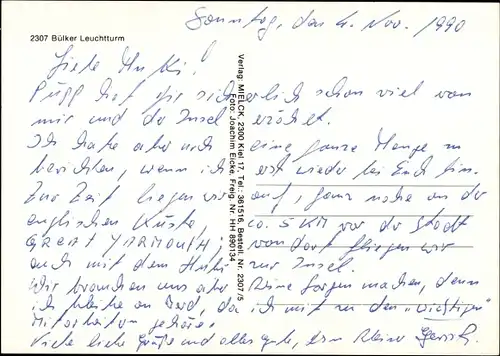 Sonntag, den 4. Nov. 1990
2307 Bülker Leuchtturm
Liebe Muki!
Puppi hat Dir sicherlich schon viel von
mir und der Insel erzählt.
Ich habe aber noch eine ganze Menge zu
berichten, wenn ich erst wieder bei Euch bin.
Zur Zeit liegen wir auf, ganz nahe an der
englischen Küste, ca. 5 KM vor der Stadt
GREAT YARMOUTH; von dort fliegen wir
auch mit dem Hubi zur Insel.
Wir brauchen uns aber keine Sorgen machen, denn
ich bleibe an Bord, da ich mit zu den „wichtigen"
Mitarbeitern gehöre.
Viele liebe Grüße und alles gute, Dein kleiner
Verlag: MIELCK, 2300 Kiel 17, Tel.: 361516, Bestell. Nr. 2307/5
Foto: Joachim Eicke, Freig. Nr. HH 890134